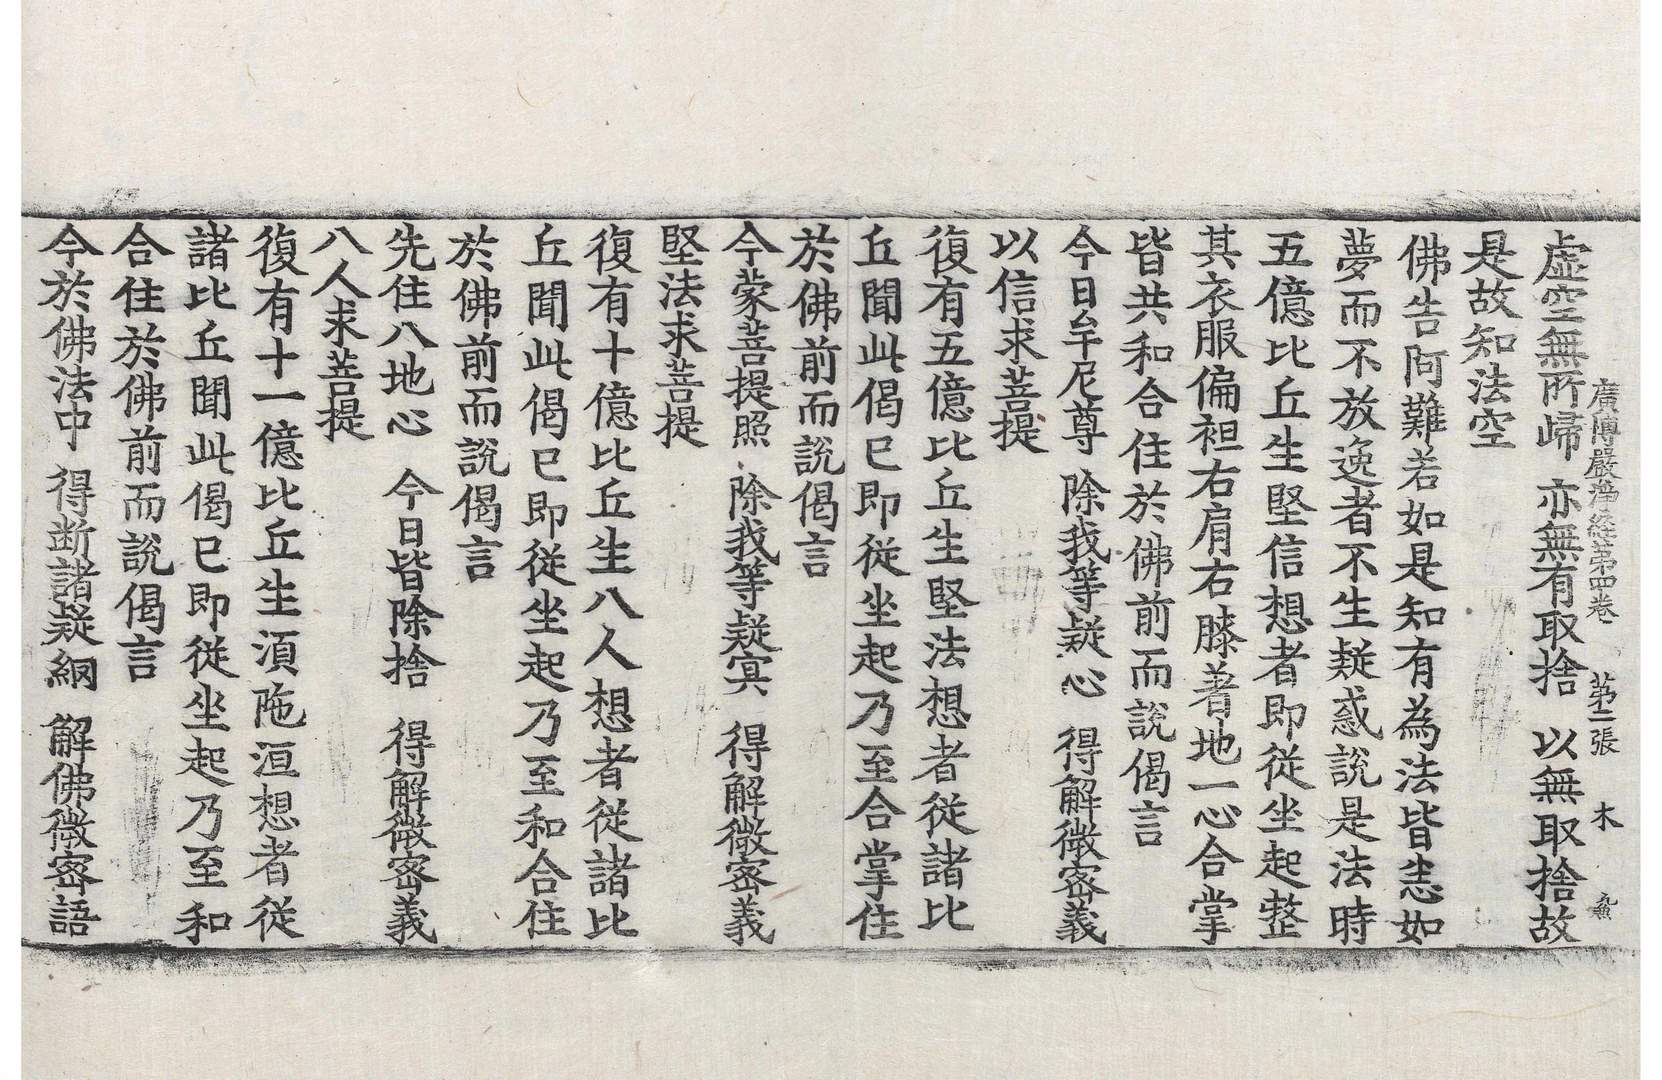 廣博嚴淨經第四卷 第二張 木
虛空無所歸 亦無有取捨 以無取捨故
是故知法空
佛告阿難若如是知有為法皆悉如
夢而不放逸者不生疑惑說是法時
五億比丘生堅信想者即從坐起整
其衣服偏袒右肩右膝著地一心合掌
皆共和合住於佛前而說偈言
今日牟尼尊 除我等疑心 得解微密義
以信求菩提
復有五億比丘生堅法想者從諸比
丘聞此偈已即從坐起乃至合掌住
於佛前而說偈言
今蒙菩提照 除我等疑冥 得解微密義
堅法求菩提
復有十億比丘生八人想者從諸比
丘聞此偈已即從坐起乃至和合住
於佛前而說偈言
先住八地心 今日皆除捨 得解微密義
八人求菩提
復有十一億比丘生湏陁洹想者從
諸比丘聞此偈已即從坐起乃至和
合住於佛前而說偈言
今於佛法中 得斷諸疑網 解佛微密語